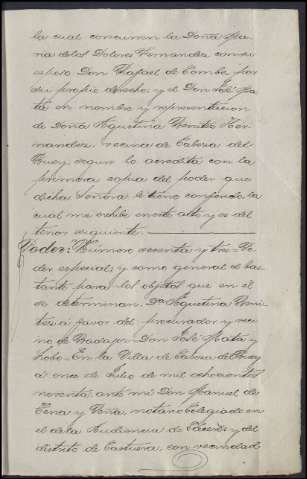 la cual concurren la Doña Ma-
ria de los Dolores Fernandez como
esposo Don Rafael de Combe, por
su propio derecho; y el Don José Ma-
ta en nombre y representacion
de Doña Agustina Benitez Her-
nandez, vecina de Cabeza del
Buey segun lo acredita con la
primera copia del poder que
dicha Señora le tiene conferido la
cual me exhibe en este acto y es del
tenor siguiente.
Poder: Número sesenta y tres = Po-
der especial, y como general de bas-
tante para los objetos que en él
se determinan. Dª Agustina Beni-
tez a favor del procurador y veci-
no de Badajoz Don José Mata y
Lobo = En la Villa de Cabeza del Buey
á once de Julio de mil ochocientos
noventa: ante mi Don Manuel de
Tena y Peña notario Colegiado en
el de la Audiencia de Cáceres y del
distrito de Castuera, con vecindad